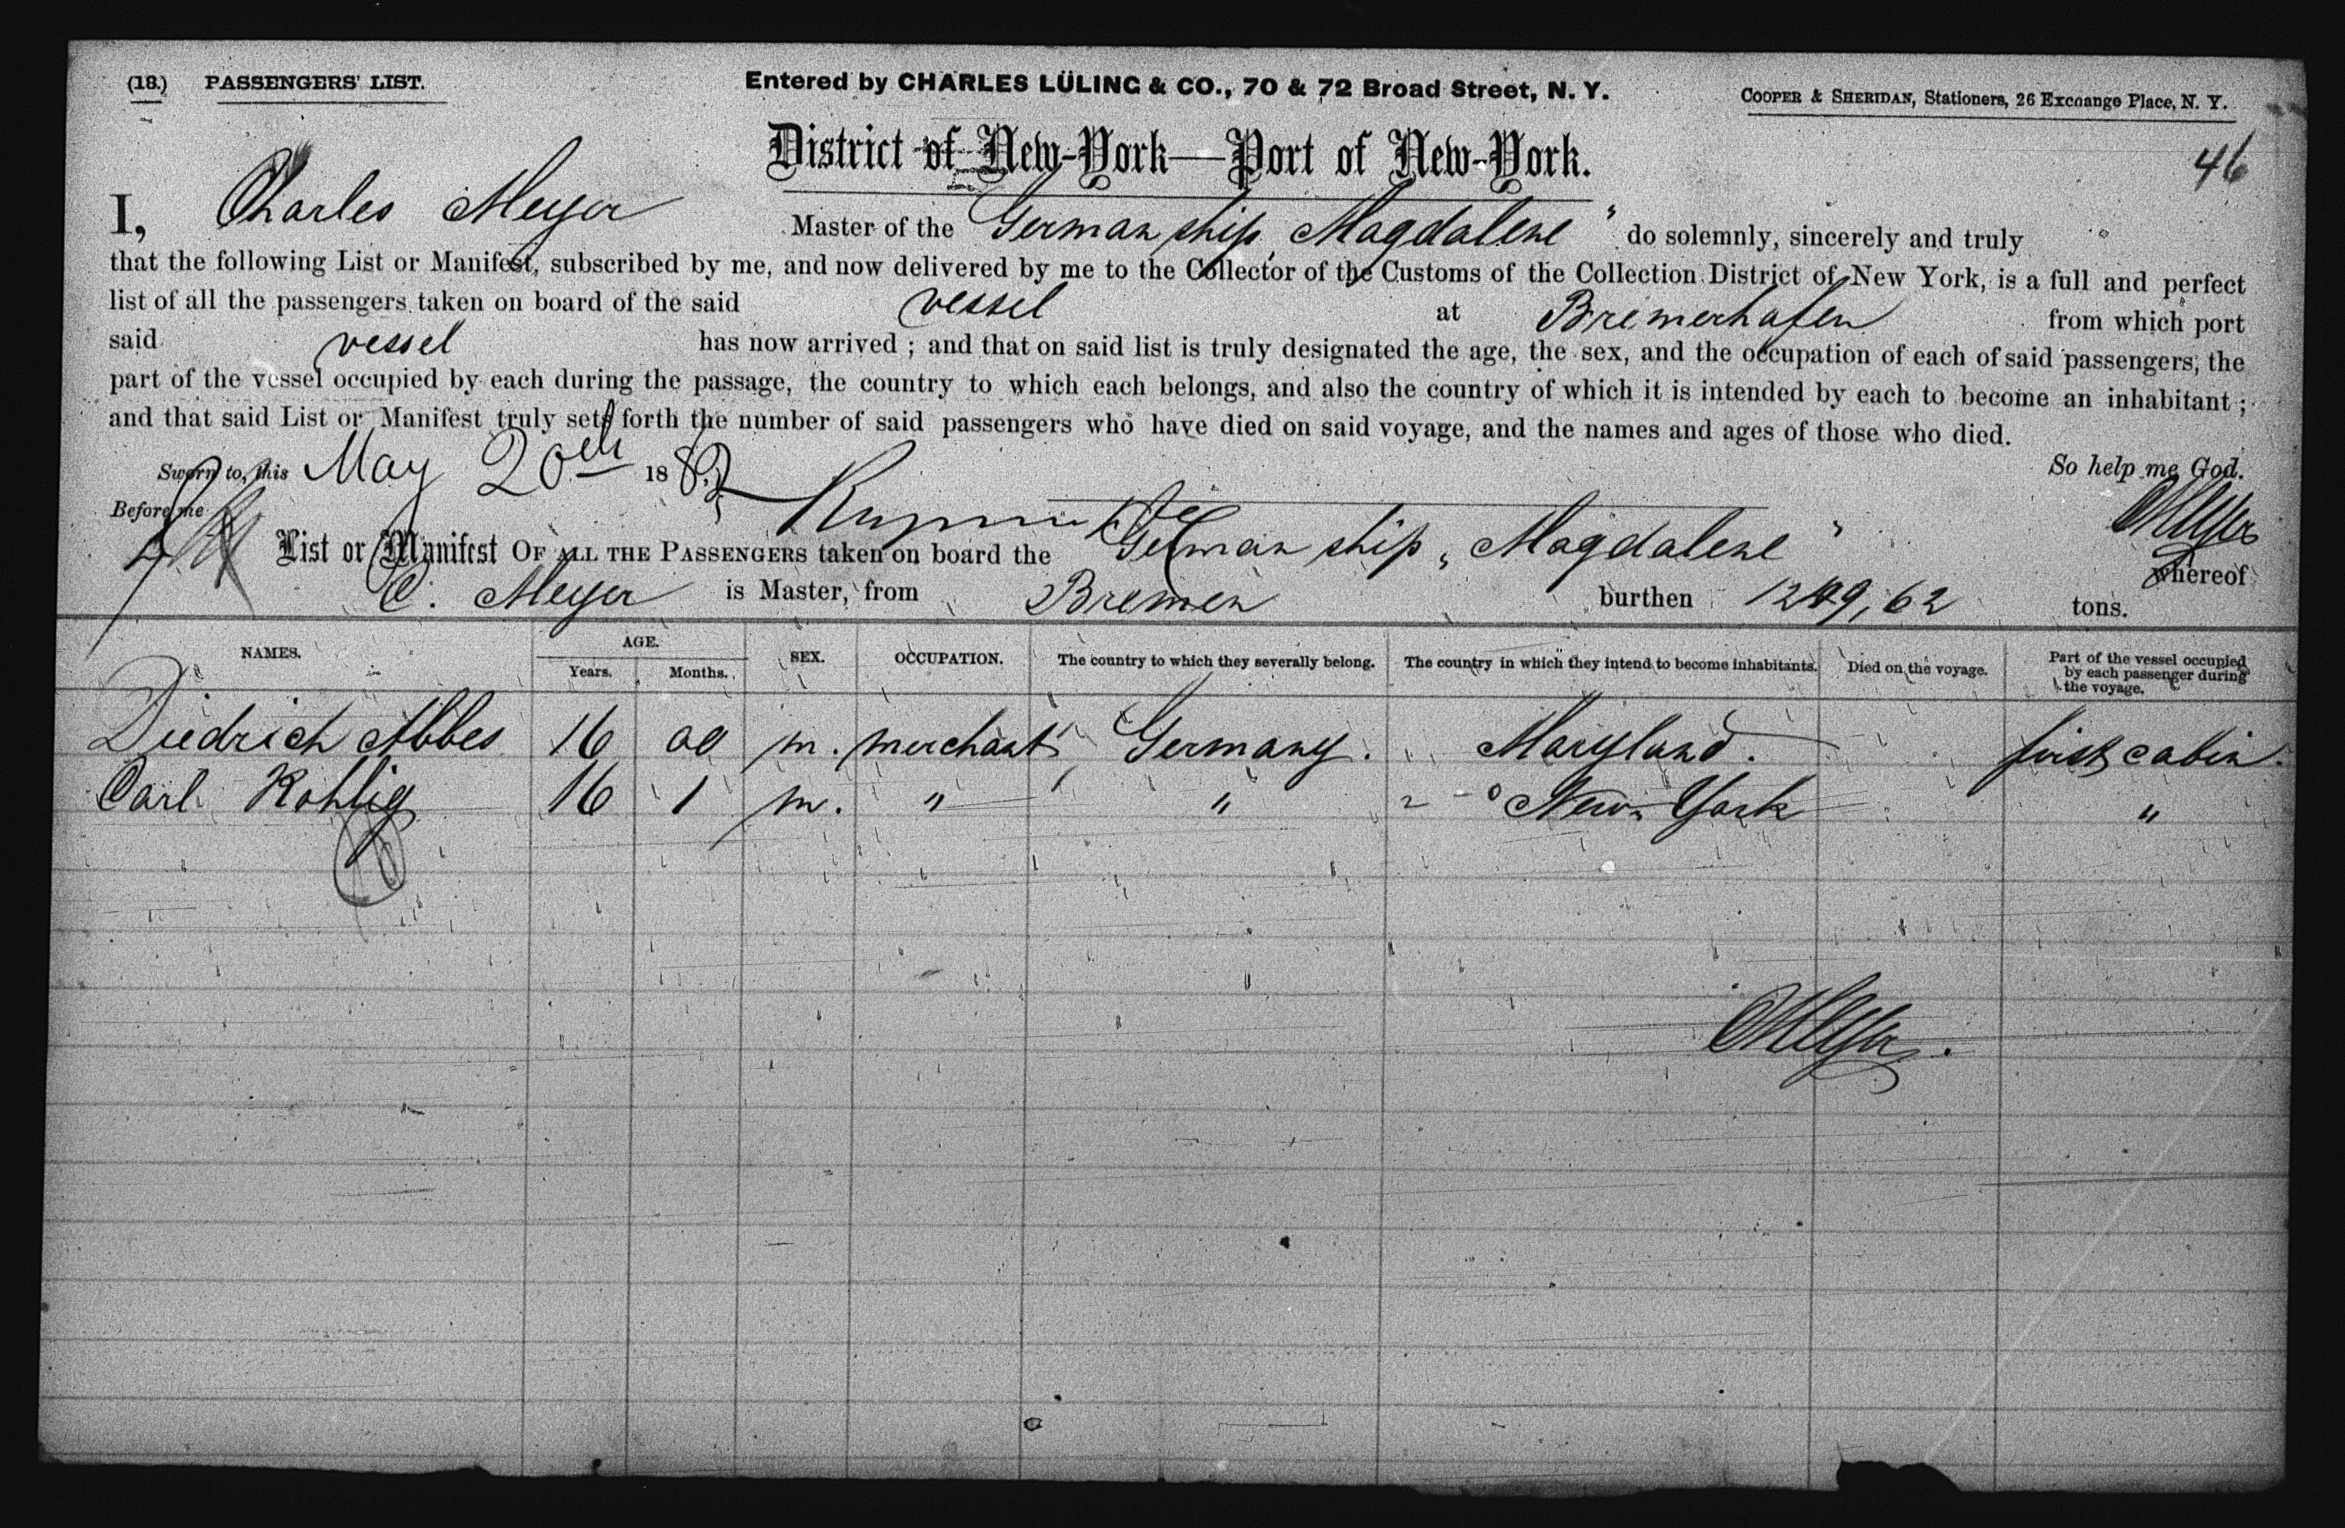 (18.) PASSENGERS' LIST.
Entered by CHARLES LÜLING & CO., 70 & 72 Broad Street, N. Y.
COOPER & SHERIDAN, Stationers, 26 Exchange Place, N. Y.
District of New-York—Port of New-York.
46
I, Charles Meyer Master of the German ship „Magdalene" do solemnly, sincerely and truly
that the following List or Manifest, subscribed by me, and now delivered by me to the Collector of the Customs of the Collection District of New York, is a full and perfect
list of all the passengers taken on board of the said vessel at Bremerhafen from which port
said vessel has now arrived ; and that on said list is truly designated the age, the sex, and the occupation of each of said passengers, the
part of the vessel occupied by each during the passage, the country to which each belongs, and also the country of which it is intended by each to become an inhabitant ;
and that said List or Manifest truly sets forth the number of said passengers who have died on said voyage, and the names and ages of those who died.
Sworn to, this May 20th 1882 So help me God.
Before me CMeyer
List or Manifest OF ALL THE PASSENGERS taken on board the German ship „Magdalene" whereof
C. Meyer is Master, from Bremen burthen 1249,62 tons.
NAMES. AGE. Years. Months. SEX. OCCUPATION. The country to which they severally belong. The country in which they intend to become inhabitants. Died on the voyage. Part of the vessel occupied by each passenger during the voyage.
Diedrich Abbes 16 00 m. merchant Germany. Maryland. first cabin.
Carl Rohlig 16 1 m. " " New-York "
CMeyer.